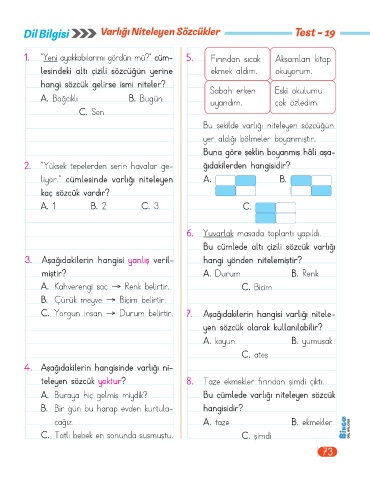 Dil Bilgisi
Varlığı Niteleyen Sözcükler
Test - 19
1. "Yeni ayakkabılarımı gördün mü?" cüm-
lesindeki altı çizili sözcüğün yerine
hangi sözcük gelirse ismi niteler?
A. Bağcıklı
B. Bugün
C. Sen
2. "Yüksek tepelerden serin havalar ge-
liyor." cümlesinde varlığı niteleyen
kaç sözcük vardır?
A. 1
B. 2
C. 3
3. Aşağıdakilerin hangisi yanlış veril-
miştir?
A. Kahverengi saç → Renk belirtir.
B. Çürük meyve → Biçim belirtir.
C. Yorgun insan → Durum belirtir.
4. Aşağıdakilerin hangisinde varlığı ni-
teleyen sözcük yoktur?
A. Buraya hiç gelmiş miydik?
B. Bir gün bu harap evden kurtula-
cağız.
C. Tatlı bebek en sonunda susmuştu.
5. Fırından sıcak
ekmek aldım.
Akşamları kitap
okuyorum.
Sabah erken
uyandım.
Eski okulumu
çok özledim.
Bu şekilde varlığı niteleyen sözcüğün
yer aldığı bölmeler boyanmıştır.
Buna göre şeklin boyanmış hâli aşa-
ğıdakilerden hangisidir?
A.
B.
C.
6. Yuvarlak masada toplantı yapıldı.
Bu cümlede altı çizili sözcük varlığı
hangi yönden nitelemiştir?
A. Durum
B. Renk
C. Biçim
7. Aşağıdakilerin hangisi varlığı nitele-
yen sözcük olarak kullanılabilir?
A. koyun
B. yumuşak
C. ateş
8. Taze ekmekler fırından şimdi çıktı.
Bu cümlede varlığı niteleyen sözcük
hangisidir?
A. taze
B. ekmekler
C. şimdi
73